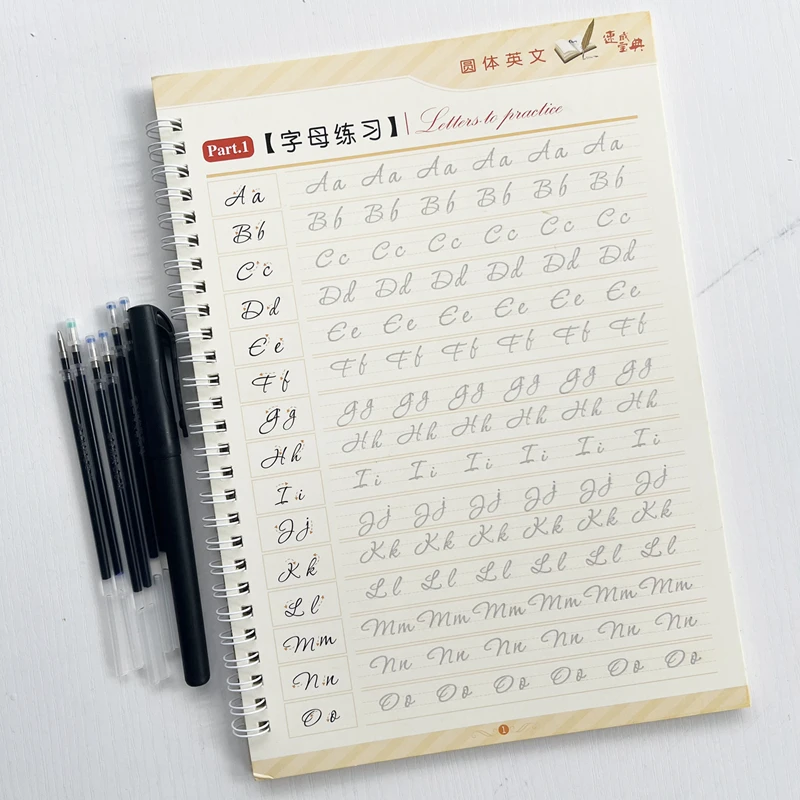 圆体英文 速成宝典
Part.1 【字母练习】 Letters to practice
Aa Aa Aa Aa Aa Aa Aa
Bb Bb Bb Bb Bb Bb Bb
Cc Cc Cc Cc Cc Cc Cc
Dd Dd Dd Dd Dd Dd Dd
Ee Ee Ee Ee Ee Ee Ee
Ff Ff Ff Ff Ff Ff Ff
Gg Gg Gg Gg Gg Gg Gg
Hh Hh Hh Hh Hh Hh Hh
Ii Ii Ii Ii Ii Ii Ii
Jj Jj Jj Jj Jj Jj Jj
Kk Kk Kk Kk Kk Kk Kk
Ll Ll Ll Ll Ll Ll Ll
Mm Mm Mm Mm Mm Mm Mm
Nn Nn Nn Nn Nn Nn Nn
Oo Oo Oo Oo Oo Oo Oo
1